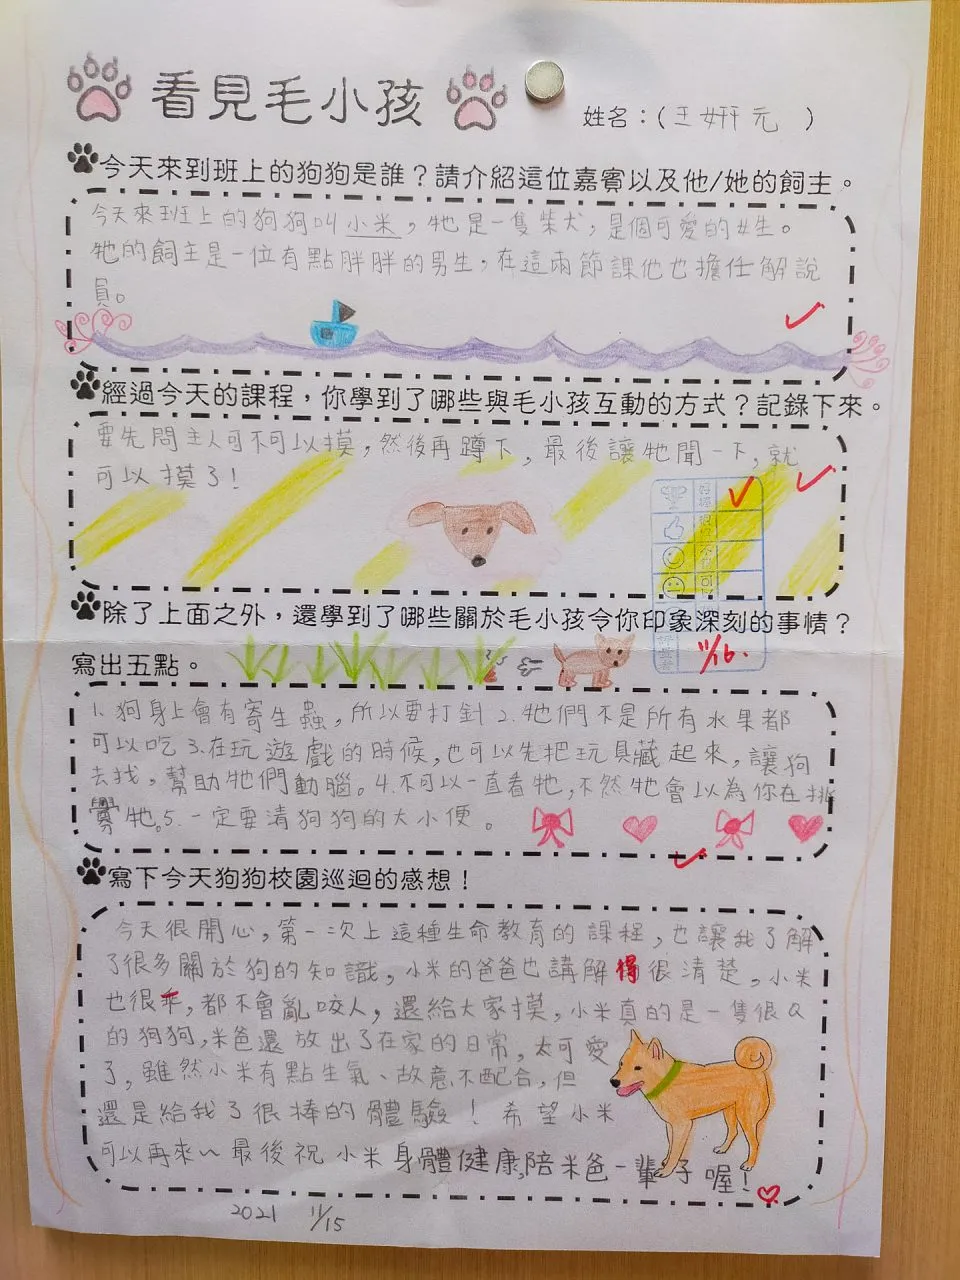 看見毛小孩
姓名：(王妍元 )
今天來到班上的狗狗是誰？請介紹這位嘉賓以及他/她的飼主。
今天來班上的狗狗叫小米，牠是一隻柴犬，是個可愛的女生。
牠的飼主是一位有點胖胖的男生，在這兩節課他也擔任解說
員。
經過今天的課程，你學到了哪些與毛小孩互動的方式？記錄下來。
要先問主人可不可以摸，然後再蹲下，最後讓牠聞一下，就
可以摸了！
除了上面之外，還學到了哪些關於毛小孩令你印象深刻的事情？
11/16.
寫出五點。
1. 狗身上會有寄生蟲，所以要打針 2. 牠們不是所有水果都
可以吃 3.在玩遊戲的時候，也可以先把玩具藏起來，讓狗
去找，幫助牠們動腦。4.不可以一直看牠，不然牠會以為你在挑
釁牠。5.一定要清狗狗的大小便。
寫下今天狗狗校園巡迴的感想！
今天很開心，第一次上這種生命教育的課程，也讓我了解
了很多關於狗的知識，小米的爸爸也講解得很清楚，小米
也很乖，都不會亂咬人，還給大家摸，小米真的是一隻很Q
的狗狗，米爸還放出了在家的日常，太可愛
了，雖然小米有點生氣、故意不配合，但
還是給我了很棒的體驗！希望小米
可以再來～最後祝小米身體健康，陪米爸一輩子喔！
2021 11/15